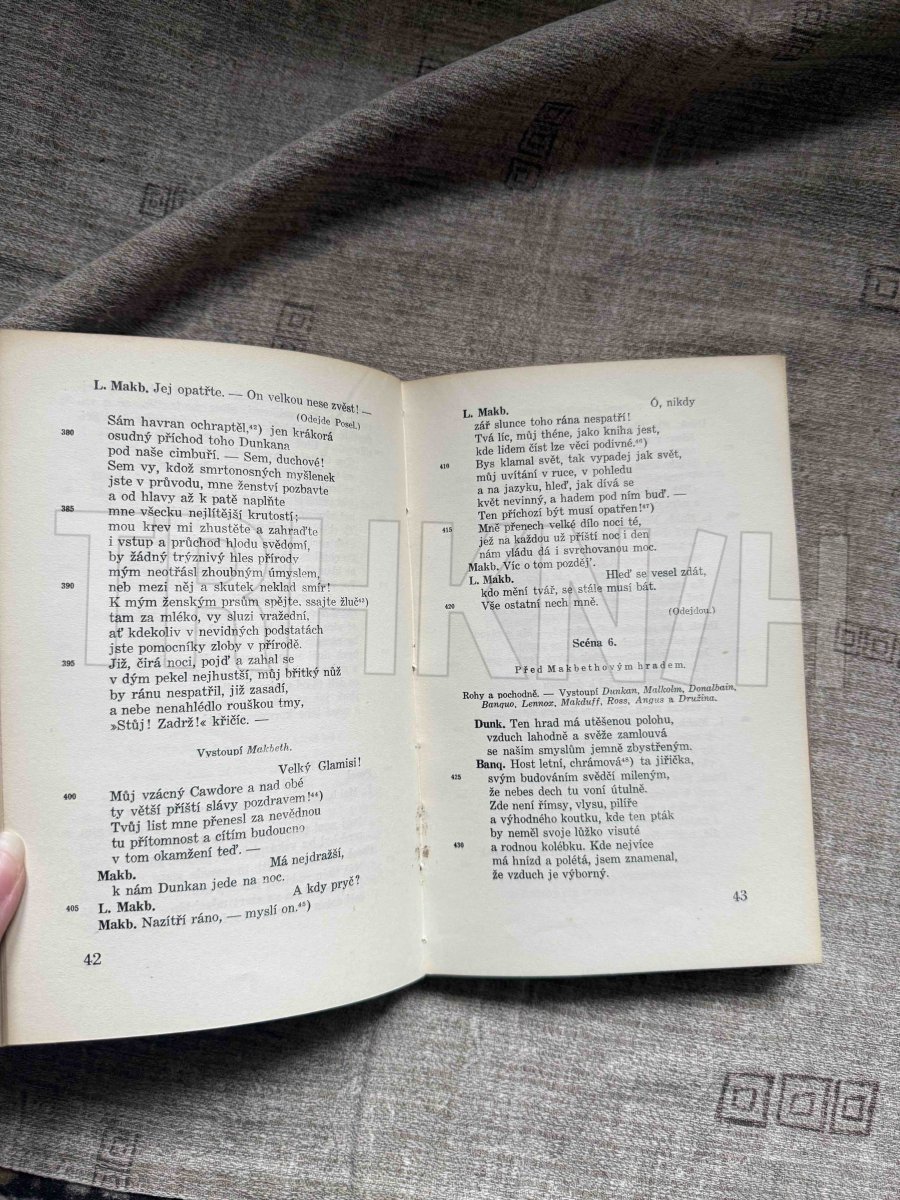 L. Makb. Jej opatřte. — On velkou nese zvěst! —
(Odejde Posel.)
Sám havran ochraptěl,⁴²) jen krákorá
380 osudný příchod toho Dunkana
pod naše cimbuří. — Sem, duchové!
Sem vy, kdož smrtonosných myšlenek
jste v průvodu, mne ženství pozbavte
a od hlavy až k patě naplňte
385 mne všecku nejlítější krutostí;
mou krev mi zhustěte a zahraďte
i vstup a průchod hlodu svědomí,
by žádný trýznivý hles přírody
mým neotřásl zhoubným úmyslem,
390 neb mezi něj a skutek neklad smír!
K mým ženským prsům spějte, ssajte žluč⁴³)
tam za mléko, vy sluzi vražední,
ať kdekoliv v nevidných podstatách
jste pomocníky zloby v přírodě.
395 Již, čirá noci, pojď a zahal se
v dým pekel nejhustší, můj břitký nůž
by ránu nespatřil, již zasadí,
a nebe nenahlédlo rouškou tmy,
»Stůj! Zadrž!« křičíc. —
Vystoupí Makbeth.
Velký Glamisi!
400 Můj vzácný Cawdore a nad obé
ty větší příští slávy pozdravem!⁴⁴)
Tvůj list mne přenesl za nevědnou
tu přítomnost a cítím budoucno
v tom okamžení teď. —
Makb. Má nejdražší,
k nám Dunkan jede na noc.
405 L. Makb. A kdy pryč?
Makb. Nazítří ráno, — myslí on.⁴⁵)
42
L. Makb. Ó, nikdy
zář slunce toho rána nespatří!
Tvá líc, můj théne, jako kniha jest,
kde lidem číst lze věci podivné.⁴⁶)
410 Bys klamal svět, tak vypadej jak svět,
měj uvítání v ruce, v pohledu
a na jazyku, hleď, jak dívá se
květ nevinný, a hadem pod ním buď. —
Ten příchozí být musí opatřen!⁴⁷)
415 Mně přenech velké dílo noci té,
jež na každou už příští noc i den
nám vládu dá i svrchovanou moc.
Makb. Víc o tom později.
L. Makb. Hleď se vesel zdát,
kdo mění tvář, se stále musí bát.
420 Vše ostatní nech mně.
(Odejdou.)
Scéna 6.
Před Makbethovým hradem.
Rohy a pochodně. — Vystoupí Dunkan, Malkolm, Donalbain,
Banquo, Lennox, Makduff, Ross, Angus a Družina.
Dunk. Ten hrad má utěšenou polohu,
vzduch lahodně a svěže zamlouvá
se našim smyslům jemně zbystřeným.
Banq. Host letní, chrámová⁴⁸) ta jiřička,
425 svým budováním svědčí mileným,
že nebes dech tu voní útulně.
Zde není římsy, vlysu, pilíře
a výhodného koutku, kde ten pták
by neměl svoje lůžko visuté
430 a rodnou kolébku. Kde nejvíce
má hnízd a polétá, jsem znamenal,
že vzduch je výborný.
43